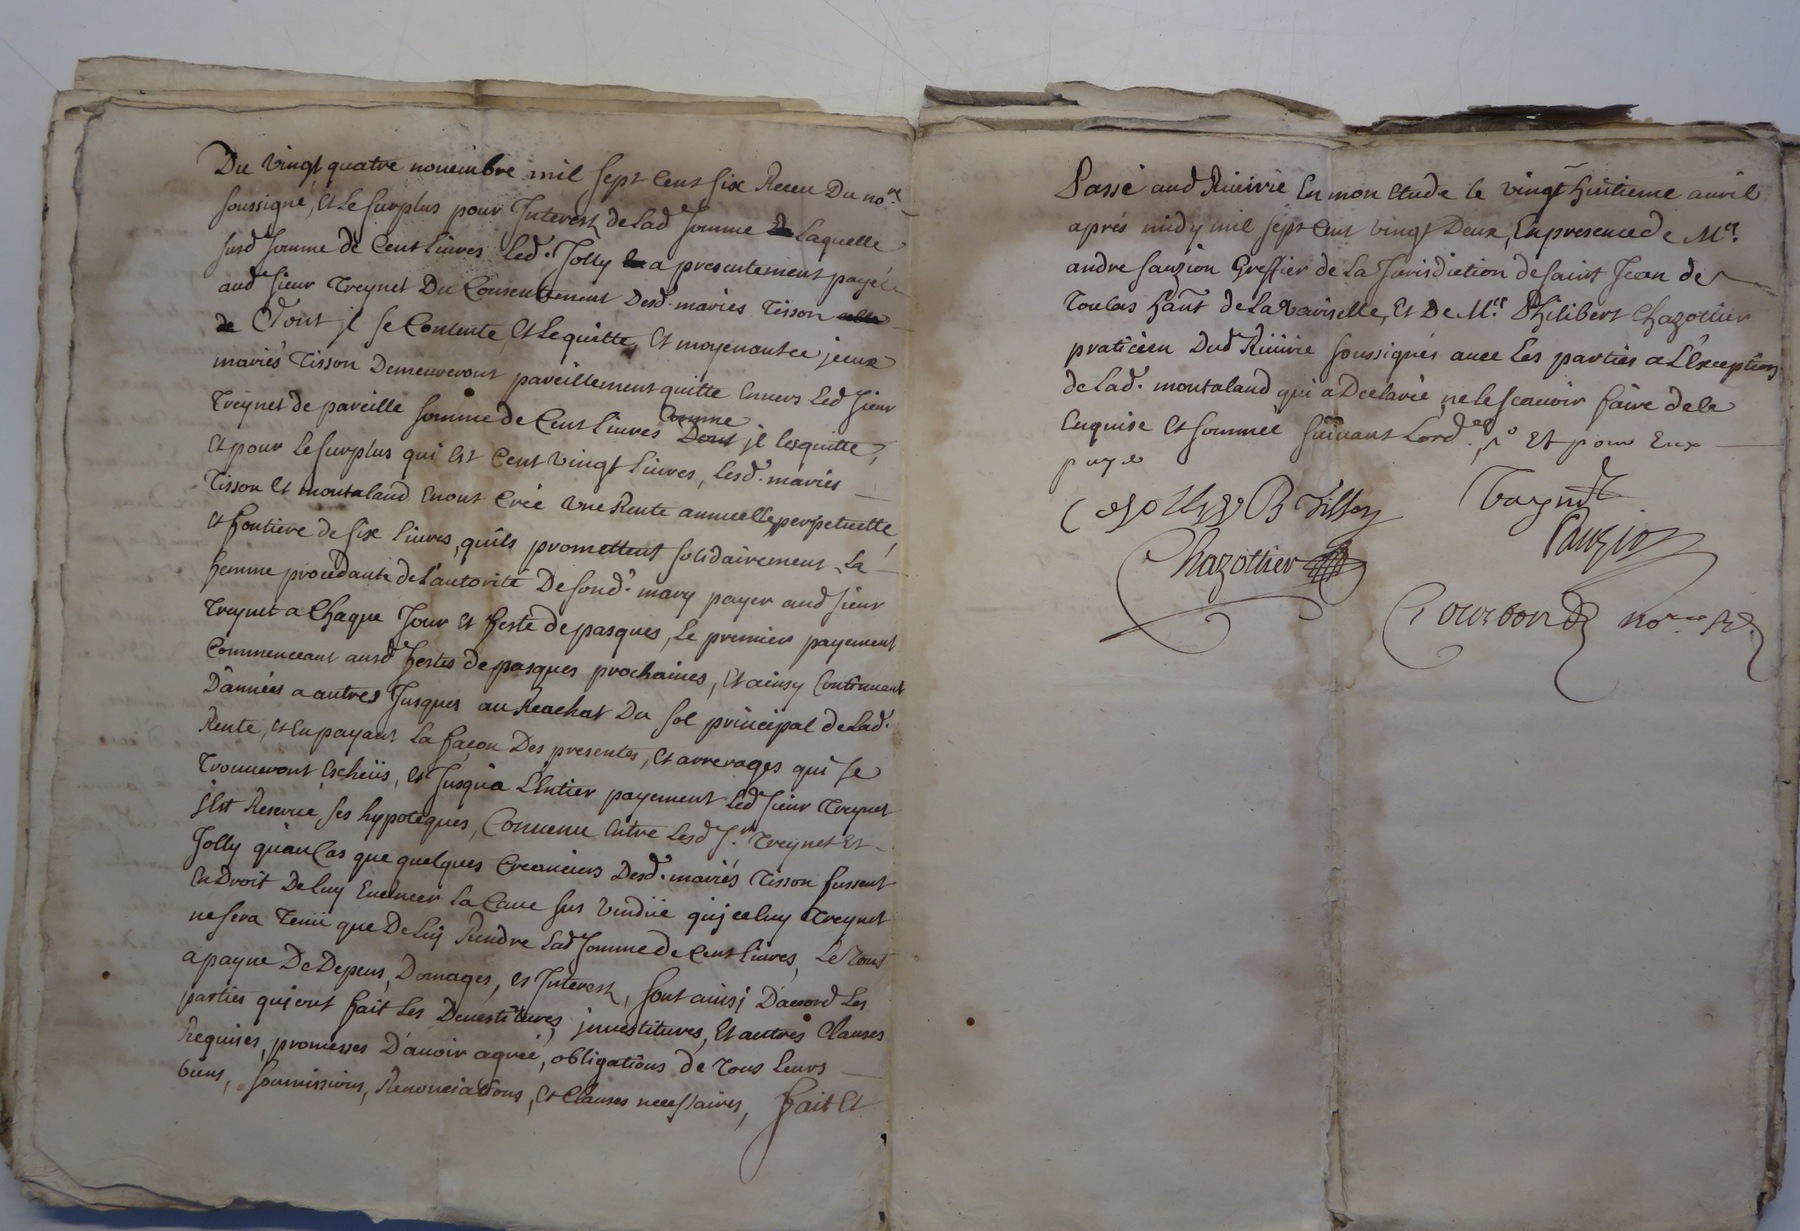 Du vingt quatre nouembre mil sept Cent six Receu Du no.re
soussigné, et Le surplus pour Interest de Lad somme Laquelle
susd somme de Cent Liures Led. Jolly a presentement payée
aud sieur Treynet Du Consentement Desd. mariés Tisson
Dont jl se Contente, et Le quitte, et moyenant ce jceux
mariés Tisson Demeureront pareillement quitte Enuers Led sieur
Treynet de pareille somme de Cent Liures Comme jl les quitte,
Et pour Le surplus qui Est Cent vingt Liures, Lesd. mariés
Tisson et montaland En ont Créé une Rente annuelle, perpetuelle
et fontiere de six Liures, quils promettent solidairement La
femme procedante de L'autorité De sond. mary payer aud sieur
Treynet a Chaque Jour et feste de pasques, Le premier payement
Commenceant ausd festes de pasques prochaines, et ainsy Continuant
D'années a autres Jusques au Reachat Du sol principal de Lad.
Rente, et En payant La façon Des presentes, et arrerages qui se
Trouueront Escheüs, et Jusqu'a L'Entier payement Led sieur Treynet
s'est Reserué ses hypoteques, Conuenu Entre Lesd s.rs Treynet Et
Jolly qu'au Cas que quelques Creanciers Desd. mariés Tisson fussent
En Droit De Luy Euencer La Caue sus vendüe qu'jceluy Treynet
ne sera Tenü que De Luy Rendre Lad somme de Cent Liures, Le Tout
a payne De Depens, Domages, et Interest, sont ainsi D'acord Les
parties qui ont fait Les Deuestitures, jnuestitures, Et autres Clauses
Requises, promesses D'auoir agreé, obligations de Tous Leurs
biens, soumissions, Renonciations, et Clauses necessaires, fait Et
Passé aud Riuirie En mon etude le vingt huitieme auril
aprés midy mil sept Cent vingt Deux, En presence de M.re
andre sauzion Greffier de La Jurisdiction de saint Jean de
Toulas hant de La vaiselle, et De M.re Philibert Chazottier
praticien Dud Riuirie soussignés auec Les parties a L'Exception
de Lad. montaland qui a Declarée ne le scauoir faire de le
Enquise et sommée suiuant Lord.ce Et pour Eux
C Jolly B Tisson
Treynet
Sauzion
Chazottier
Gourdon no.re R.